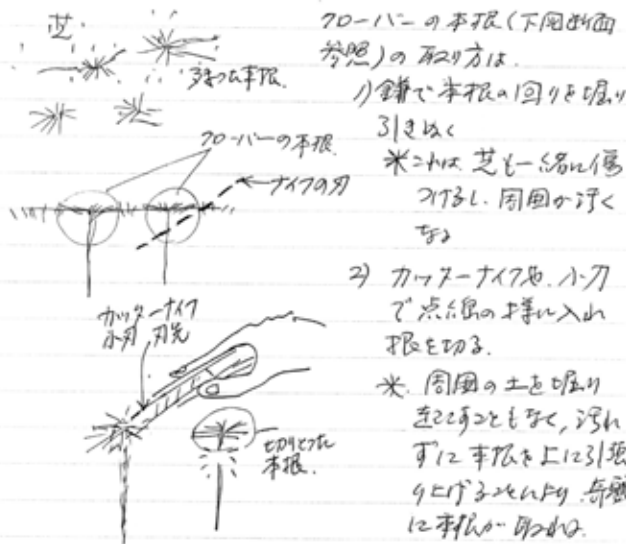 芝
残った本根
クローバーの本根
ナイフの刃
カッターナイフ
小刀 刃先
切りとった
本根.
クローバーの本根(下図断面
参照)の取り方は.
1)鎌で本根の回りを堀り
引きぬく
※これは 芝も一緒に傷
つけるし、周囲が汚く
なる
2) カッターナイフや、小刀
で点線の様に入れ
根を切る.
※. 周囲の土を堀り
起こすこともなく, 汚れ
ずに 本根を上に引張
り上げることにより
に本根が取れる.